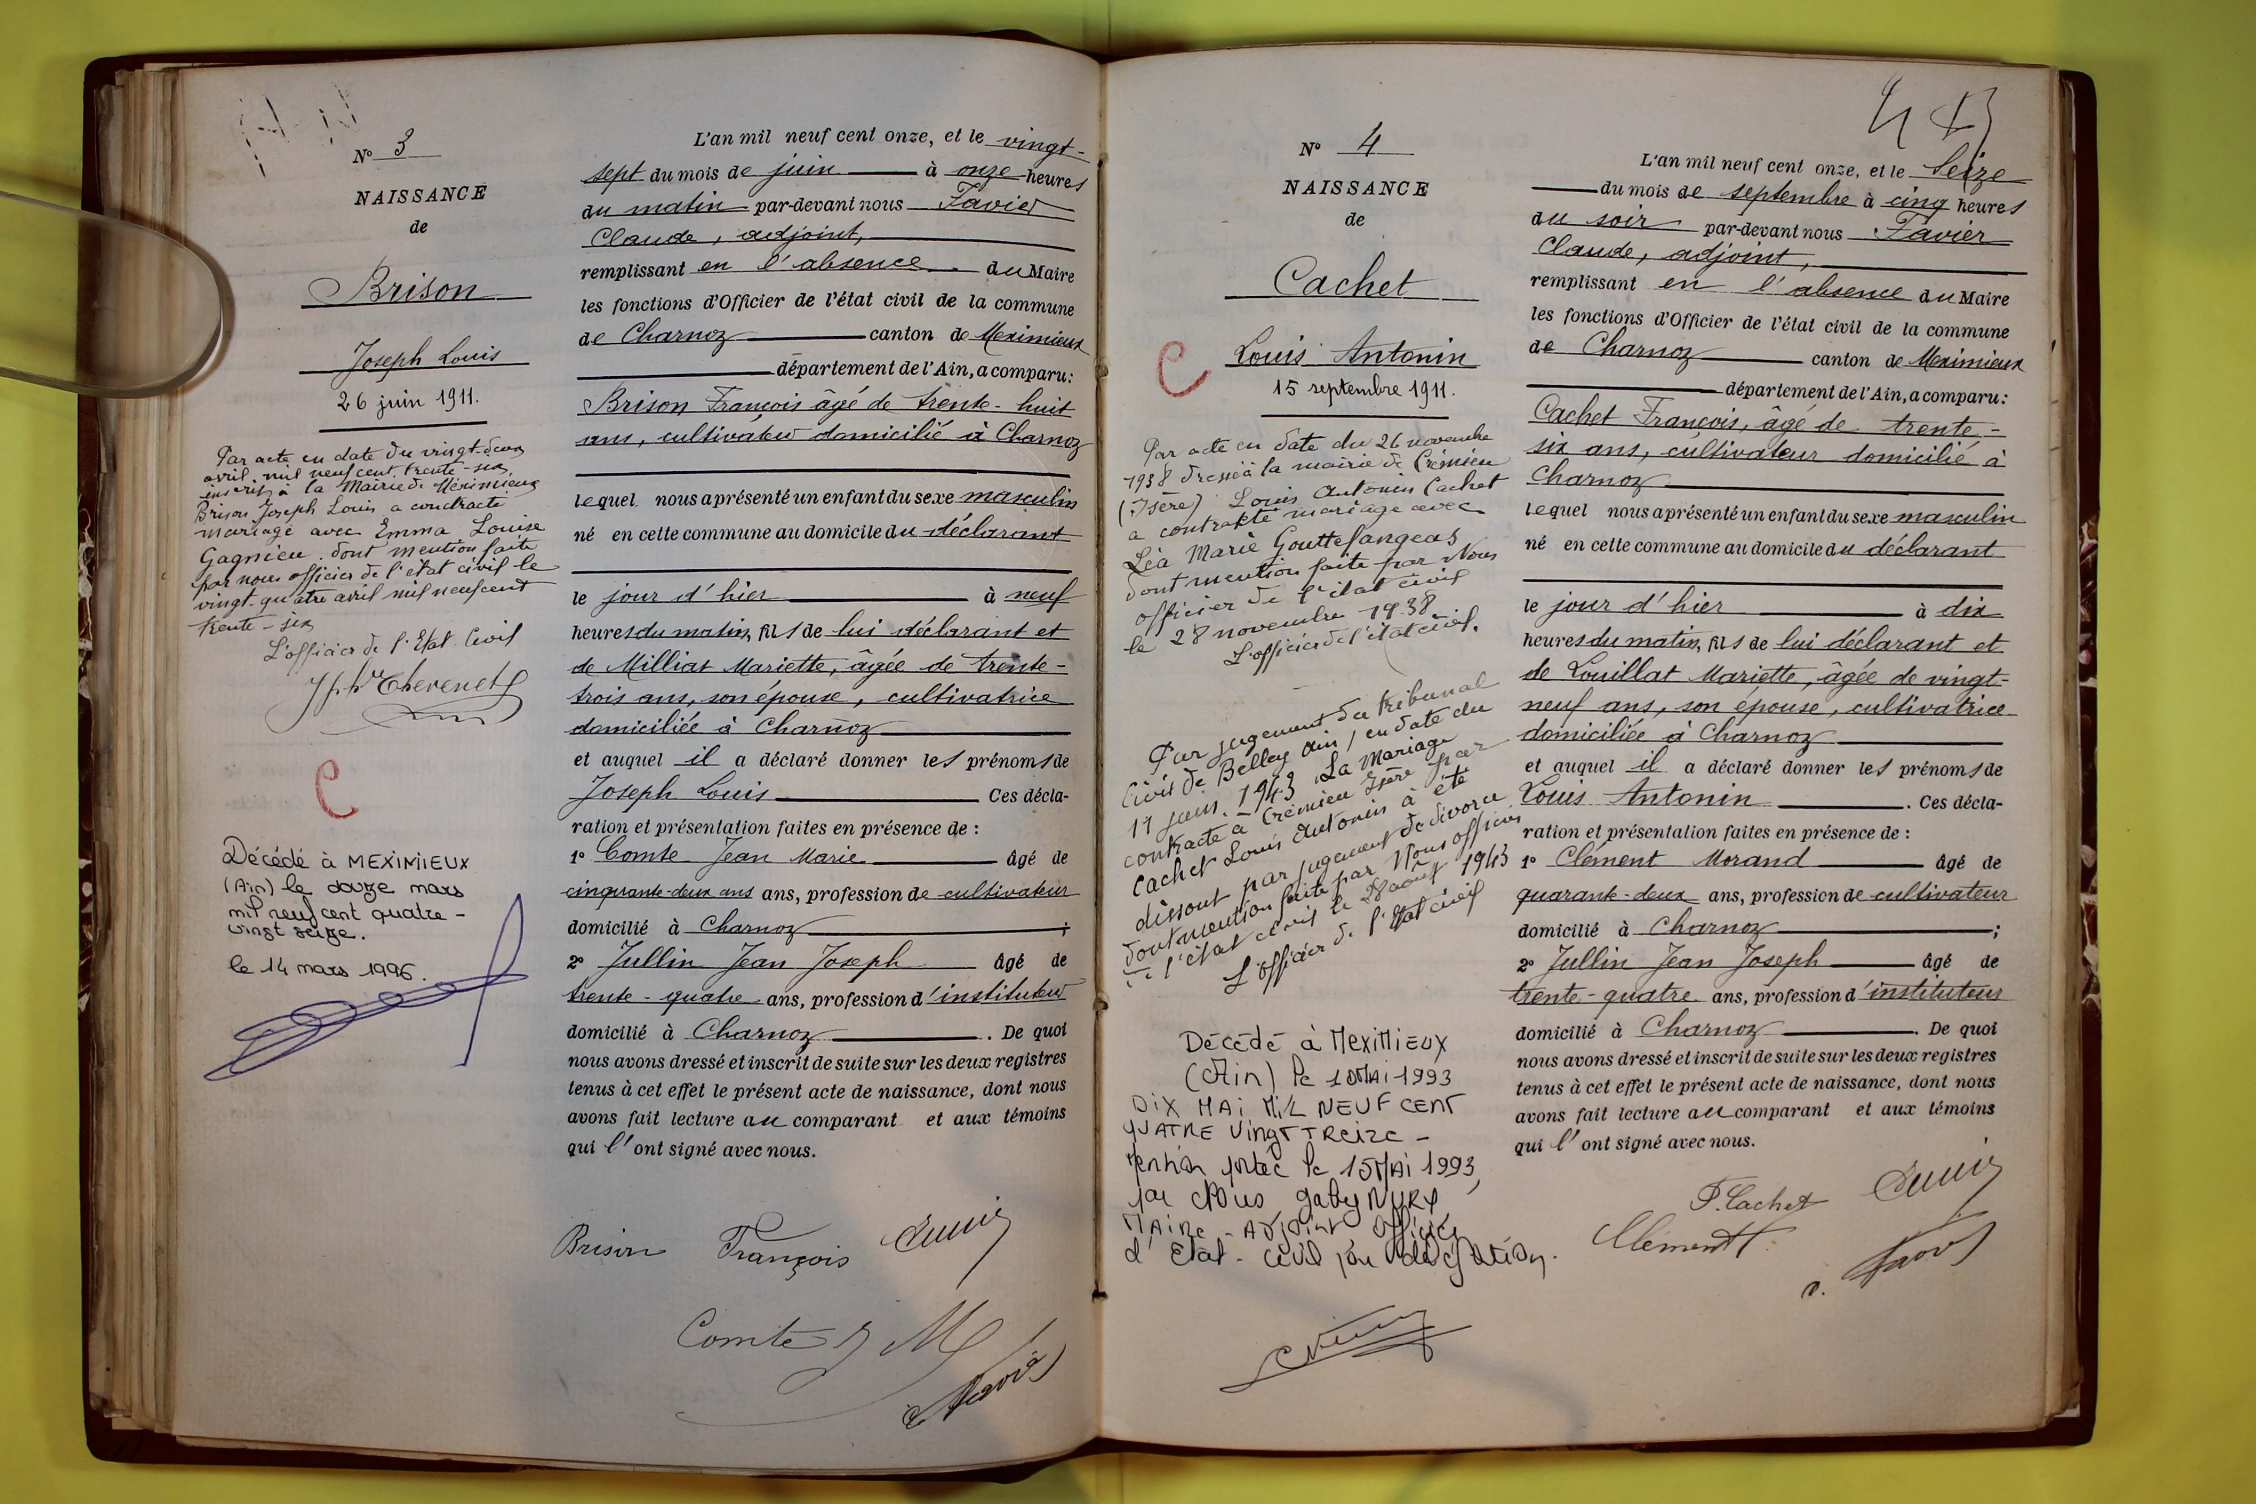 N° 3
NAISSANCE
de
Brison
Joseph Louis
26 juin 1911.
Par acte en date du vingt-deux
avril mil neuf cent trente-six,
inscrit à la Mairie de Méximieux
Brison Joseph Louis a contracté
mariage avec Emma Louise
Gagnieu. dont mention faite
par nous officier de l'état civil le
vingt-quatre avril mil neuf cent
trente-six
L'officier de l'Etat Civil
C
Décédé à MEXIMIEUX
(Ain) le douze mars
mil neuf cent quatre-
vingt seize.
le 14 mars 1996.
L'an mil neuf cent onze, et le vingt-
sept du mois de juin à onze heures
du matin par-devant nous Favier
Claude, adjoint,
remplissant en l'absence du Maire
les fonctions d'Officier de l'état civil de la commune
de Charnoz canton de Meximieux
département de l'Ain, a comparu:
Brison François âgé de trente-huit
ans, cultivateur domicilié à Charnoz
lequel nous a présenté un enfant du sexe masculin
né en cette commune au domicile du déclarant
le jour d'hier à neuf
heures du matin, fils de lui déclarant et
de Milliat Mariette, âgée de trente-
trois ans, son épouse, cultivatrice
domiciliée à Charnoz
et auquel il a déclaré donner les prénoms de
Joseph Louis Ces décla-
ration et présentation faites en présence de :
1° Comte Jean Marie âgé de
cinquante-deux ans ans, profession de cultivateur
domicilié à Charnoz ;
2° Jullin Jean Joseph âgé de
trente-quatre ans, profession d'instituteur
domicilié à Charnoz . De quoi
nous avons dressé et inscrit de suite sur les deux registres
tenus à cet effet le présent acte de naissance, dont nous
avons fait lecture au comparant et aux témoins
qui l'ont signé avec nous.
Brison François
Comte J M
N° 4
NAISSANCE
de
Cachet
Louis Antonin
15 septembre 1911.
C
Par acte en date du 26 novembre
1938 dressé à la mairie de Crémieu
(Isère) Louis Antonin Cachet
a contracté mariage avec
Léa Marie Gouttefangeas
dont mention faite par Nous
officier de l'état civil
le 28 novembre 1938
L'officier de l'état civil.
Par jugement du tribunal
Civil de Belley Ain, en date du
11 janv. 1943 La Mariage
contracté à Crémieu Isère par
Cachet Louis Antonin à été
dissout par jugement de divorce
dont mention faite par Nous officier
de l'état civil le 28 août 1943
L'officier de l'Etat civil
Décédé à MEXIMIEUX
(Ain) le 10 MAI 1993
DIX MAI MIL NEUF CENT
QUATRE VINGT TREIZE -
mention portée le 15 MAI 1993,
par Nous Gaby NURY
MAIRE-ADJOINT Officier
d'Etat-Civil par délégation.
L'an mil neuf cent onze, et le Seize
du mois de septembre à cinq heures
du soir par-devant nous Favier
Claude, adjoint,
remplissant en l'absence du Maire
les fonctions d'Officier de l'état civil de la commune
de Charnoz canton de Meximieux
département de l'Ain, a comparu:
Cachet François, âgé de trente-
six ans, cultivateur domicilié à
Charnoz
lequel nous a présenté un enfant du sexe masculin
né en cette commune au domicile du déclarant
le jour d'hier à dix
heures du matin, fils de lui déclarant et
de Louillat Mariette, âgée de vingt-
neuf ans, son épouse, cultivatrice
domiciliée à Charnoz
et auquel il a déclaré donner les prénoms de
Louis Antonin . Ces décla-
ration et présentation faites en présence de :
1° Clément Morand âgé de
quarante-deux ans, profession de cultivateur
domicilié à Charnoz ;
2° Jullin Jean Joseph âgé de
trente-quatre ans, profession d'instituteur
domicilié à Charnoz . De quoi
nous avons dressé et inscrit de suite sur les deux registres
tenus à cet effet le présent acte de naissance, dont nous
avons fait lecture au comparant et aux témoins
qui l'ont signé avec nous.
F. Cachet
Clément